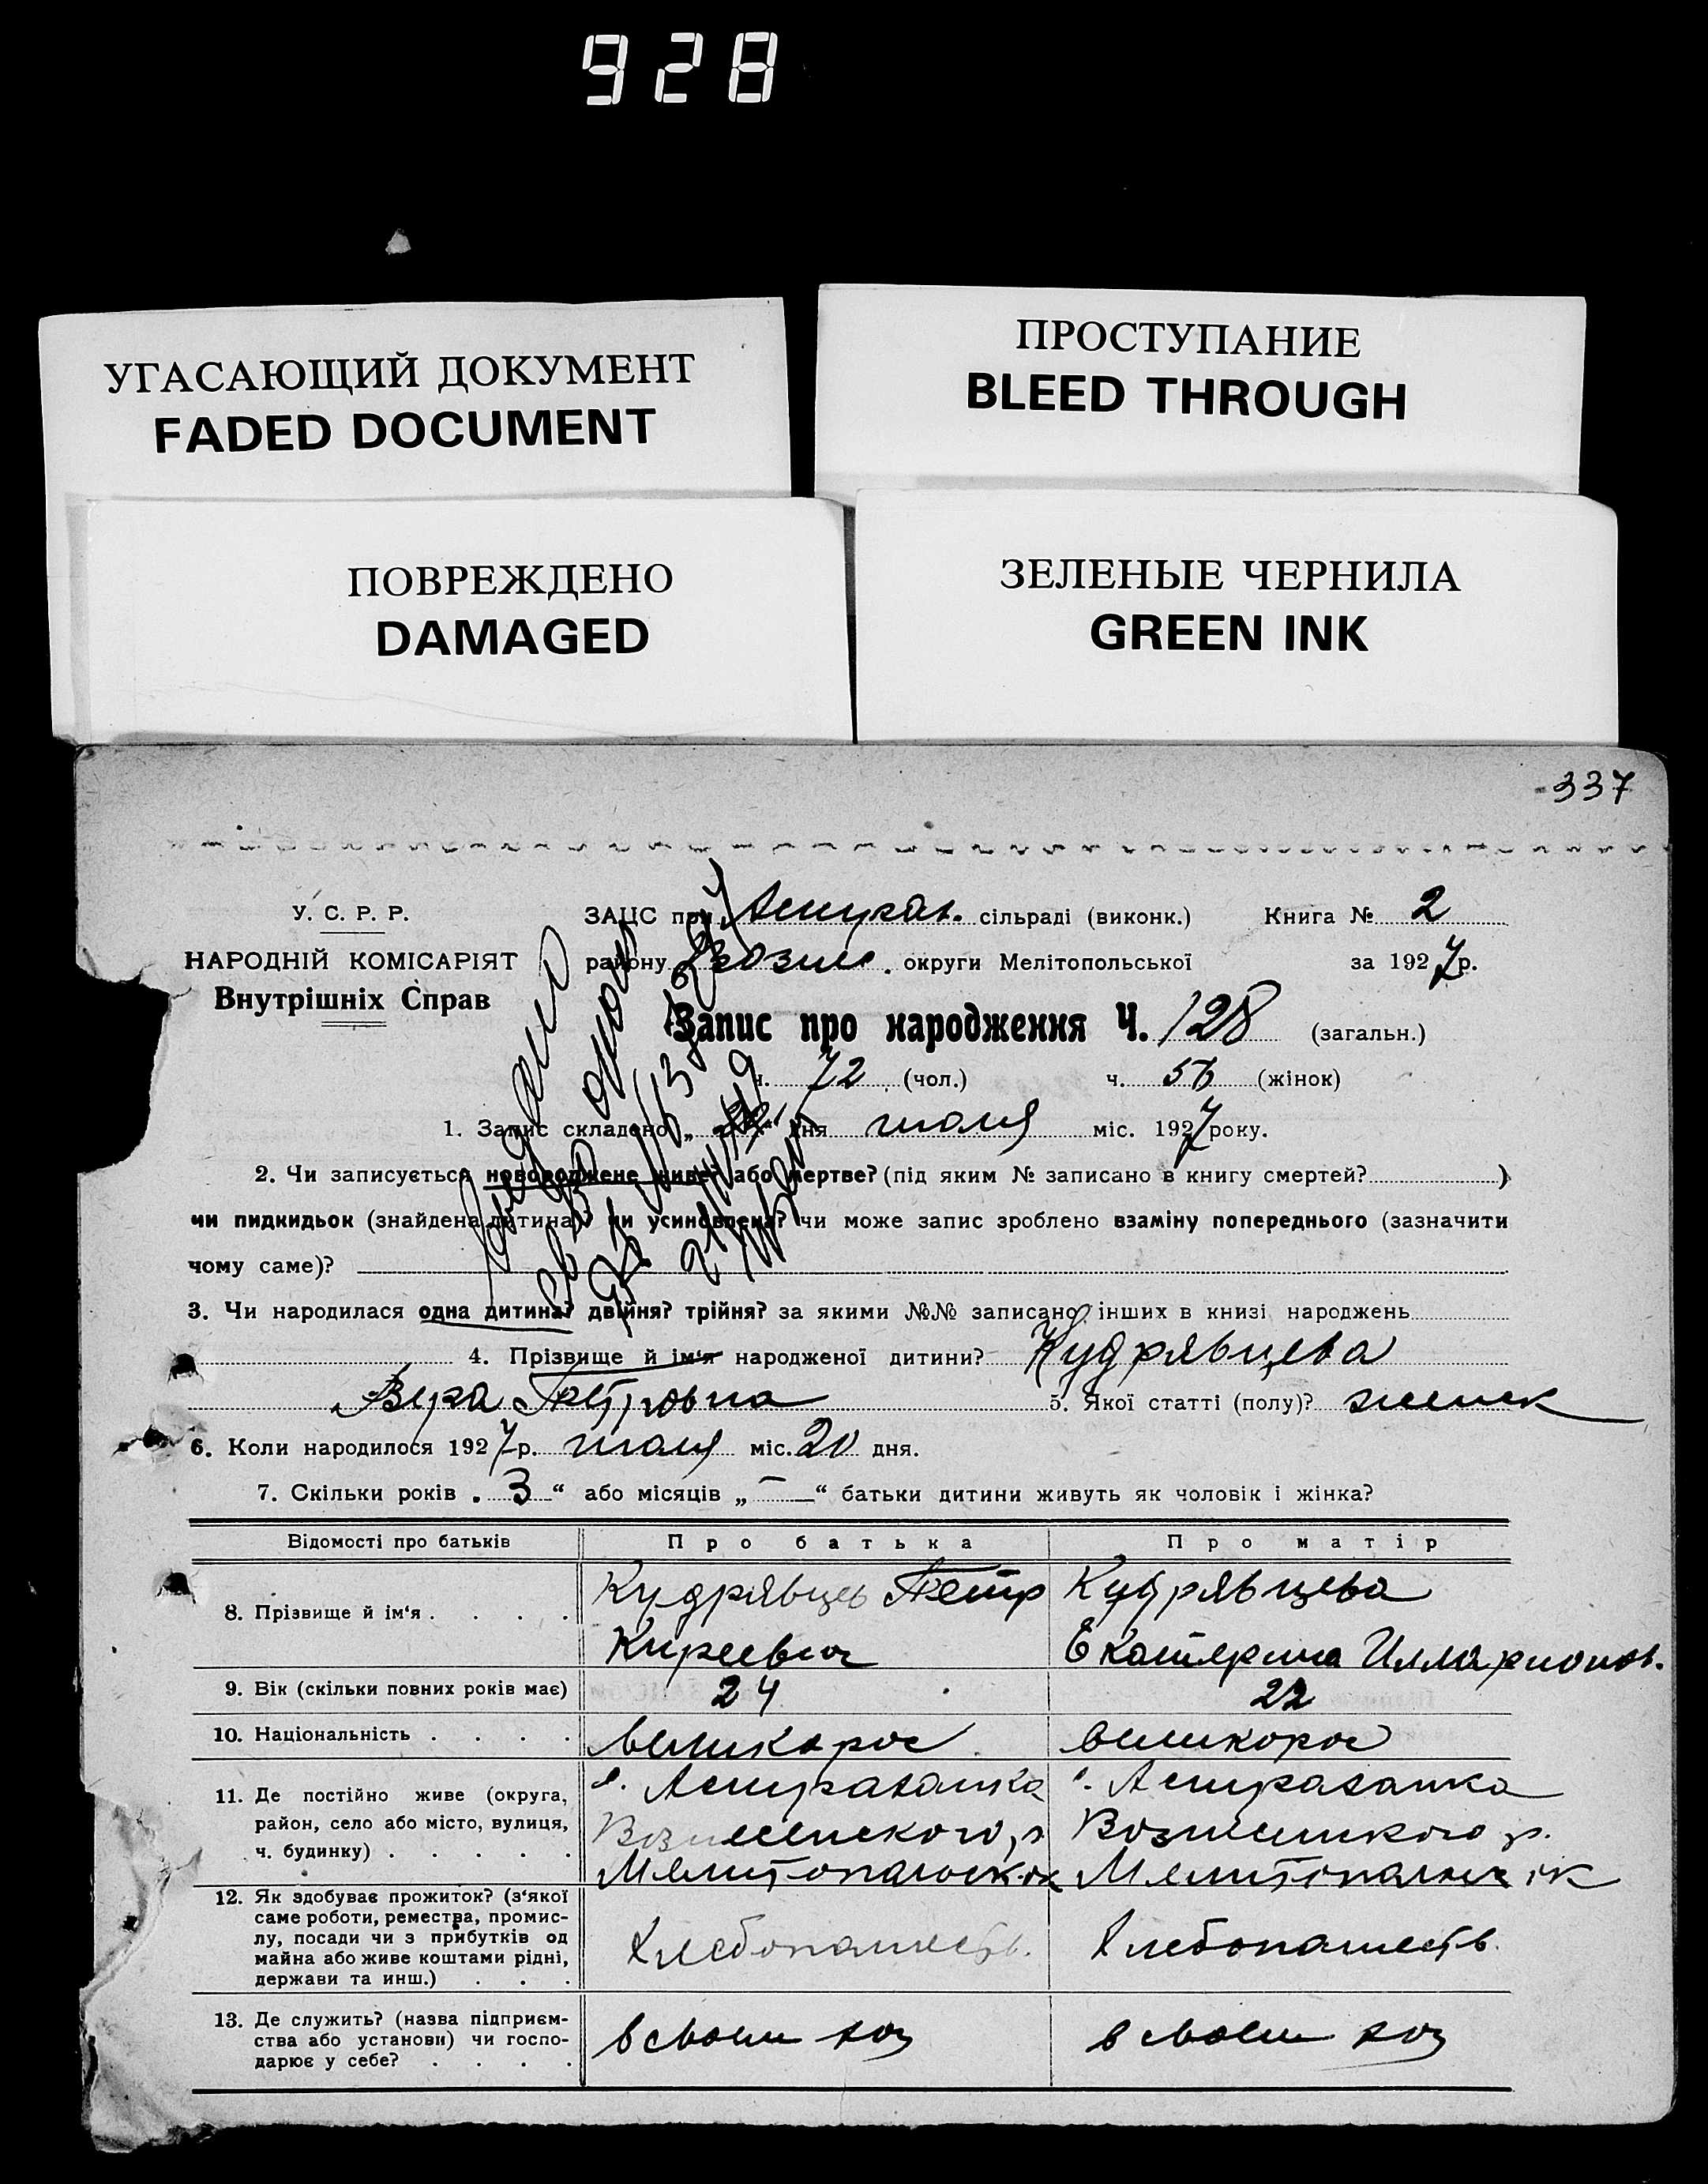 928
УГАСАЮЩИЙ ДОКУМЕНТ
FADED DOCUMENT
ПРОСТУПАНИЕ
BLEED THROUGH
ПОВРЕЖДЕНО
DAMAGED
ЗЕЛЕНЫЕ ЧЕРНИЛА
GREEN INK
337
У. С. Р. Р.
НАРОДНІЙ КОМІСАРІЯТ
Внутрішніх Справ
ЗАЦС при Астрахан. сільраді (виконк.) Книга № 2
району Возне. округи Мелітопольської за 1927 р.
Запис про народження Ч. 128 (загальн.)
ч. 72 (чол.) ч. 56 (жінок)
1. Запис складено „ “ дня июля міс. 1927 року.
2. Чи записується новороджене живе? або мертве? (під яким № записано в книгу смертей? )
чи пидкидьок (знайдена дитина)? чи усиновлена? чи може запис зроблено взаміну попереднього (зазначити
чому саме)?
3. Чи народилася одна дитина? двійня? трійня? за якими №№ записано інших в книзі народжень
4. Прізвище й ім'я народженої дитини? Кудрявцева
Вера Петровна 5. Якої статті (полу)? женск
6. Коли народилося 1927 р. июля міс. 20 дня.
7. Скільки років „ 3 “ або місяців „ — “ батьки дитини живуть як чоловік і жінка?
Відомості про батьків Про батька Про матір
8. Прізвище й ім'я . . . .
Кудрявцев Петр
Киреевич
Кудрявцева
Екатерина Илларионов.
9. Вік (скільки повних років має) 24 22
10. Національність . . . . великорос великорос
11. Де постійно живе (округа,
район, село або місто, вулиця,
ч. будинку) . . . . .
с. Астраханка
Вознесенского р
Мелитопольск ок
с. Астраханка
Вознесенского р.
Мелитопольск ок
12. Як здобуває прожиток? (з'якої
саме роботи, ремества, промис-
лу, посади чи з прибутків од
майна або живе коштами рідні,
держави та инш.) . . .
Хлебопашеств.
Хлебопашеств.
13. Де служить? (назва підприєм-
ства або установи) чи госпо-
дарює у себе? . . . .
в своем хоз
в своем хоз